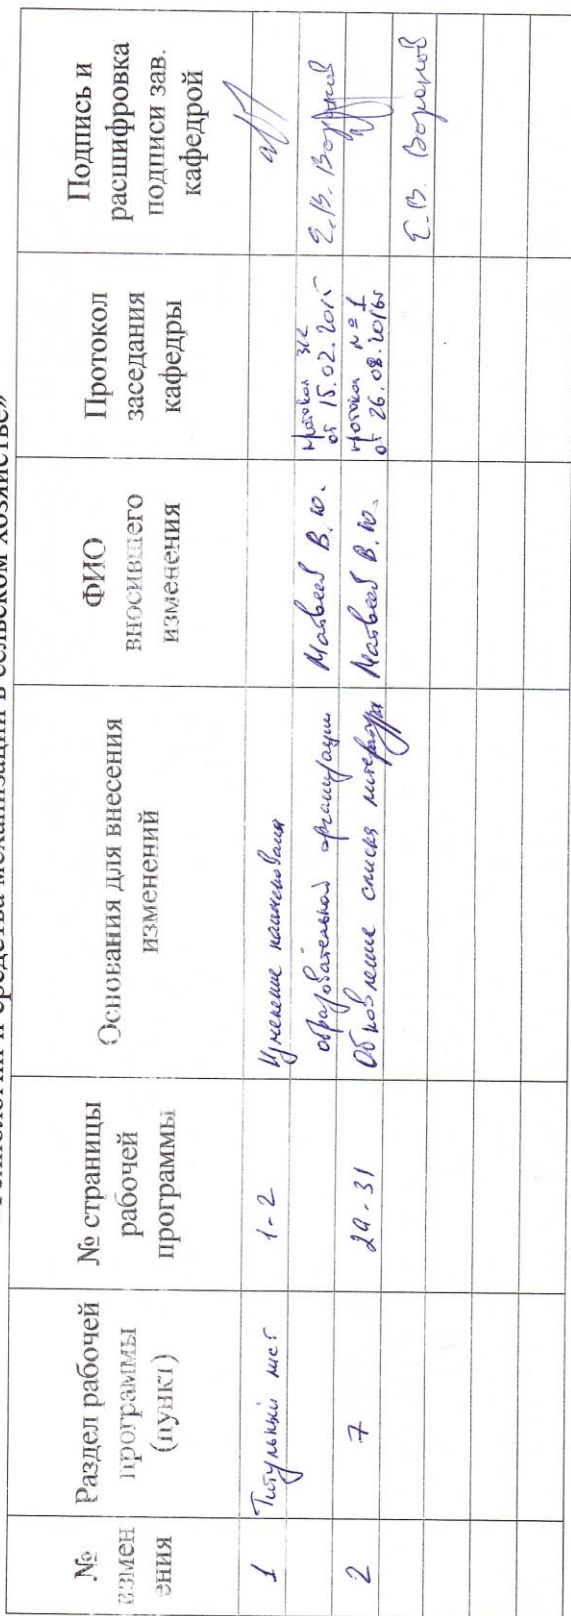 Технологии и средства механизации в сельском хозяйстве»
№
измен
ения
Раздел рабочей
программы
(пункт)
№ страницы
рабочей
программы
Основания для внесения
изменений
ФИО
вносившего
изменения
Протокол
заседания
кафедры
Подпись и
расшифровка
подписи зав.
кафедрой
1
Титульный лист
1-2
Изменение наименования
образовательной организации
Матвеев В.Ю.
протокол
от 15.02.2015
Е.В. Воронов
2
7
29-31
Обновление списка литературы
Матвеев В.Ю.
протокол № 1
от 26.08.2016г
Е.В. Воронов